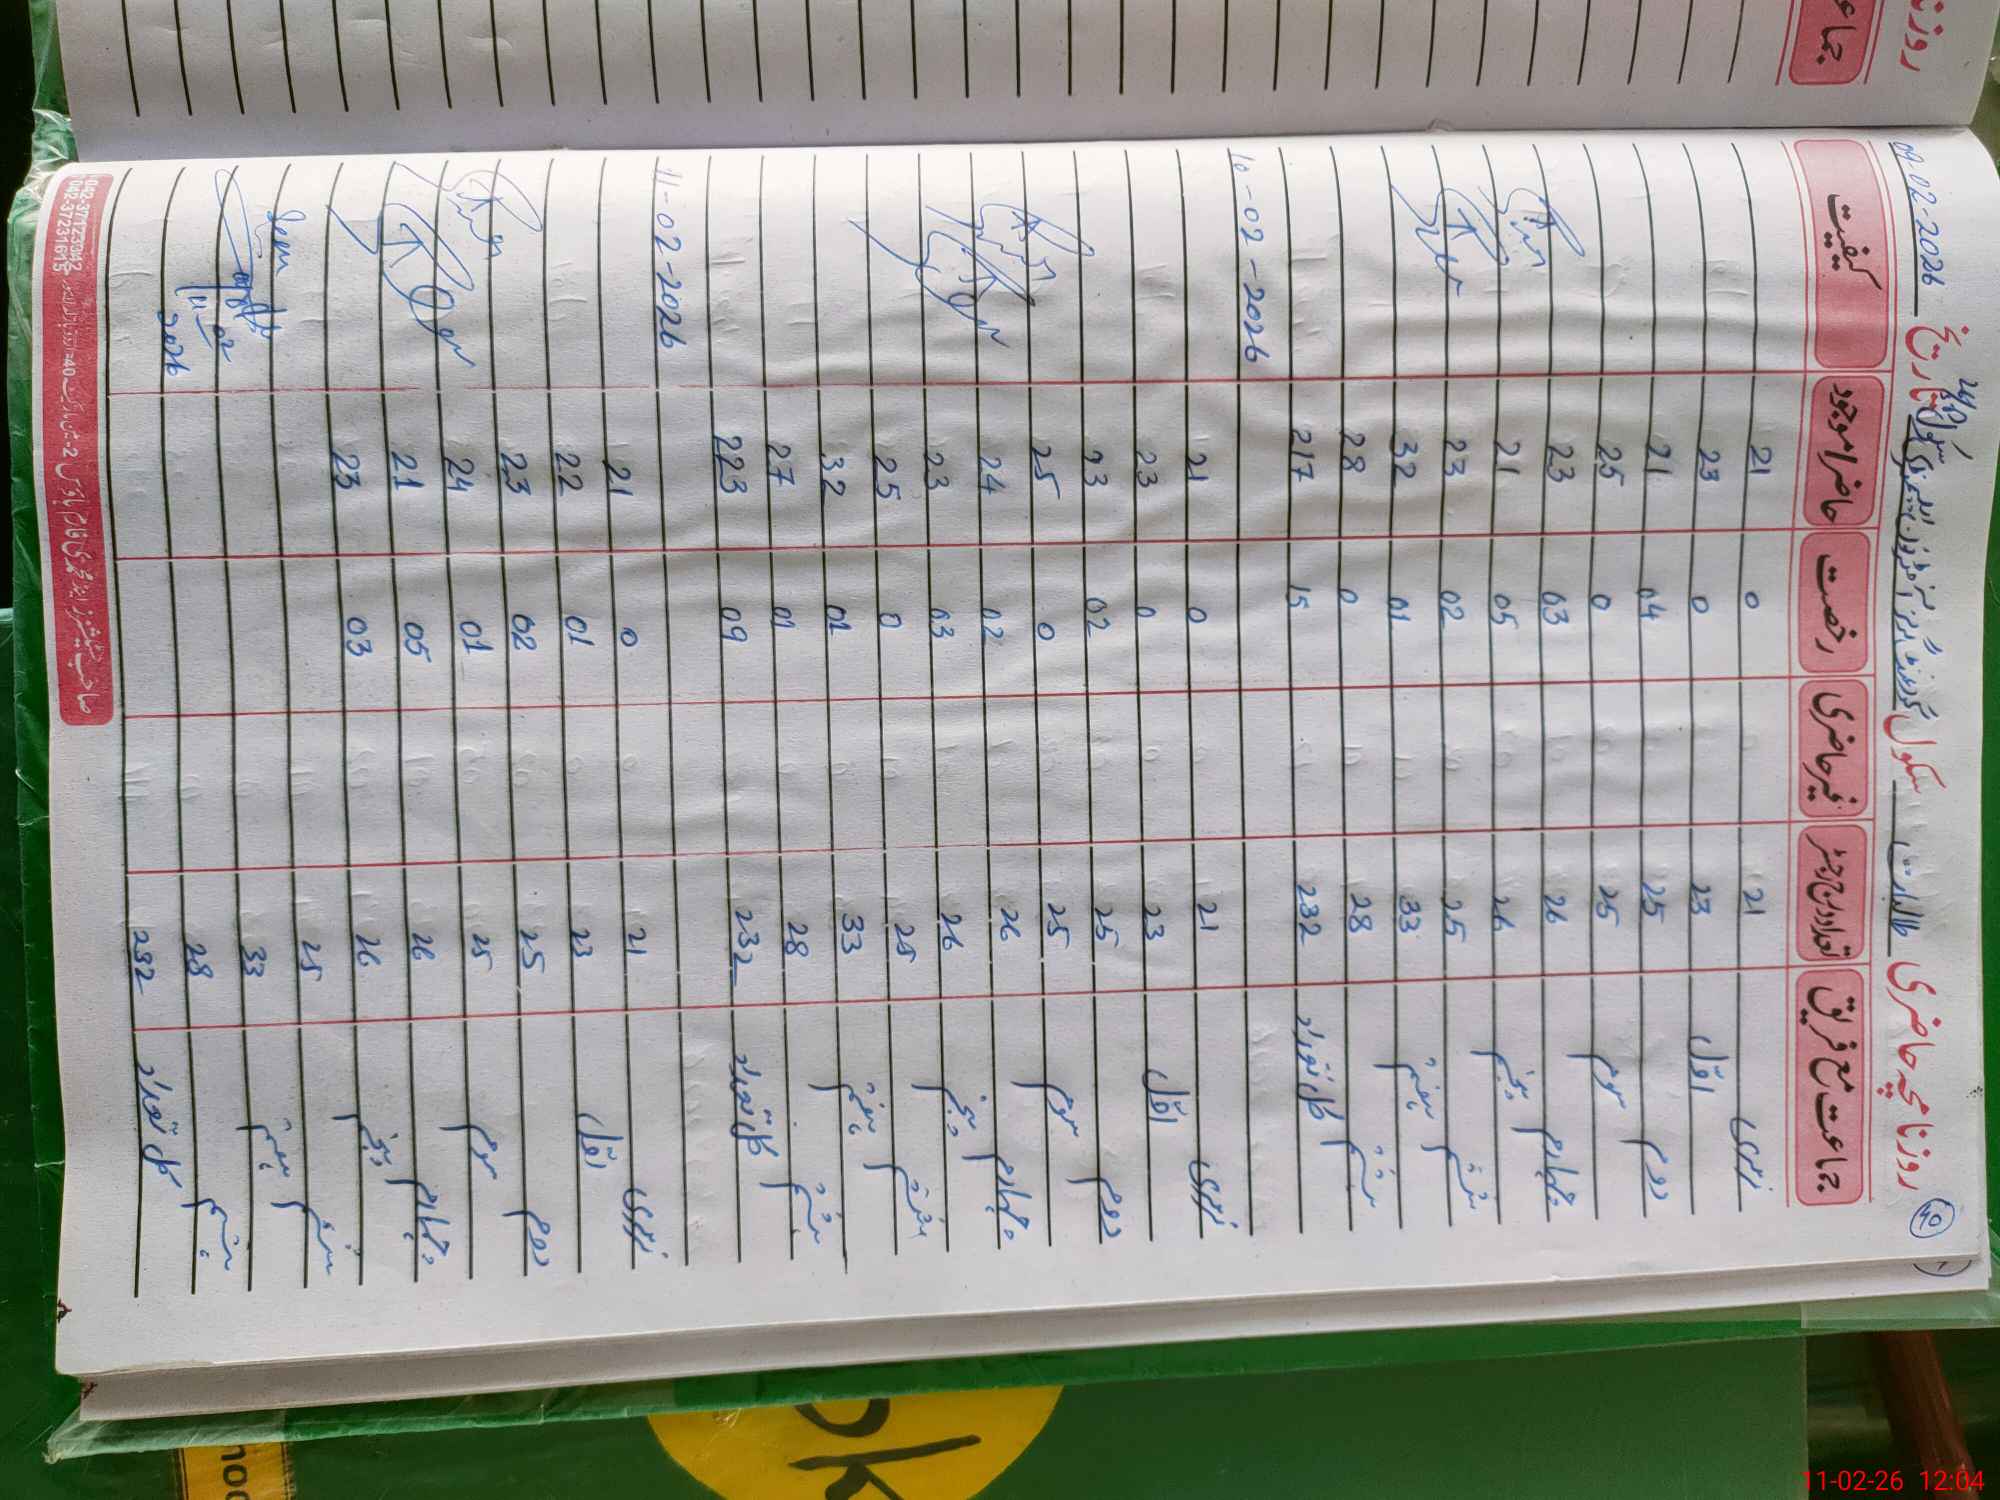 روزنامچہ حاضری طالبات سکول گورنمنٹ گرلز سکول تاریخ 09-02-2026
40
جماعت مع فریق تعداد درج رجسٹر غیر حاضری رخصت حاضر/موجود کیفیت
نرسری 21 0 21
اوّل 23 0 23
دوم 25 04 21
سوم 25 0 25
چہارم 26 03 23
پنجم 26 05 21
ششم 25 02 23
ہفتم 33 01 32
ہشتم 28 0 28
کل تعداد 232 15 217
10-02-2026
نرسری 21 0 21
اوّل 23 0 23
دوم 25 02 23
سوم 25 0 25
چہارم 26 02 24
پنجم 26 03 23
ششم 25 0 25
ہفتم 33 01 32
ہشتم 28 01 27
کل تعداد 232 09 223
11-02-2026
نرسری 21 0 21
اوّل 23 01 22
دوم 25 02 23
سوم 25 01 24
چہارم 26 05 21
پنجم 26 03 23
ششم 25
ہفتم 33
ہشتم 28
کل تعداد 232
Seen
11-02
2026
042-37123342
042-37231615
روزنا
جماع
ok
11-02-26 12:04